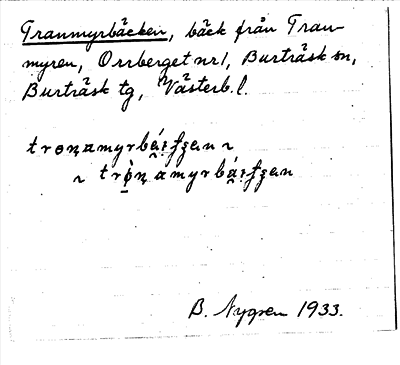 Tranmyrbäcken, bäck från Tran-
myren, Orrberget nr 1, Burträsk sn,
Burträsk tg, Västerb. l.
B. Nygren 1933.